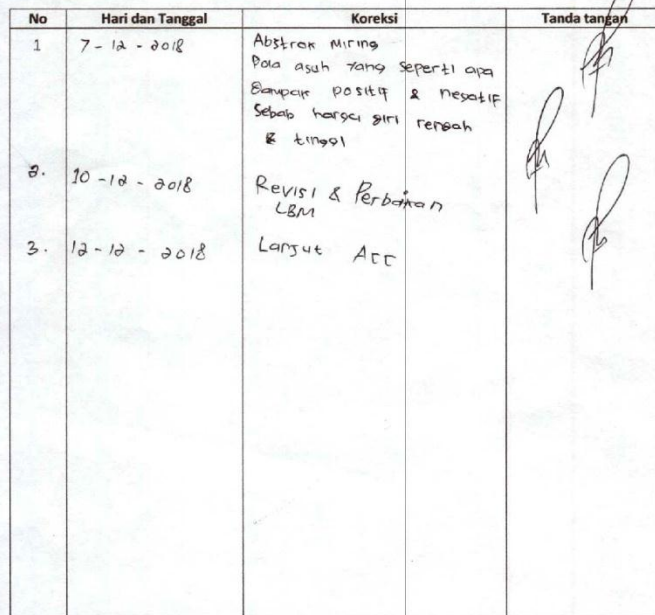 No Hari dan Tanggal Koreksi Tanda tangan
1 7-12-2018 Abstrak Miring
Pola asuh yang seperti apa
Dampak positif & negatif
Sebab harga diri rendah
& tinggi
2. 10-12-2018 Revisi & Perbaikan
LBM
3. 12-12-2018 Lanjut Acc